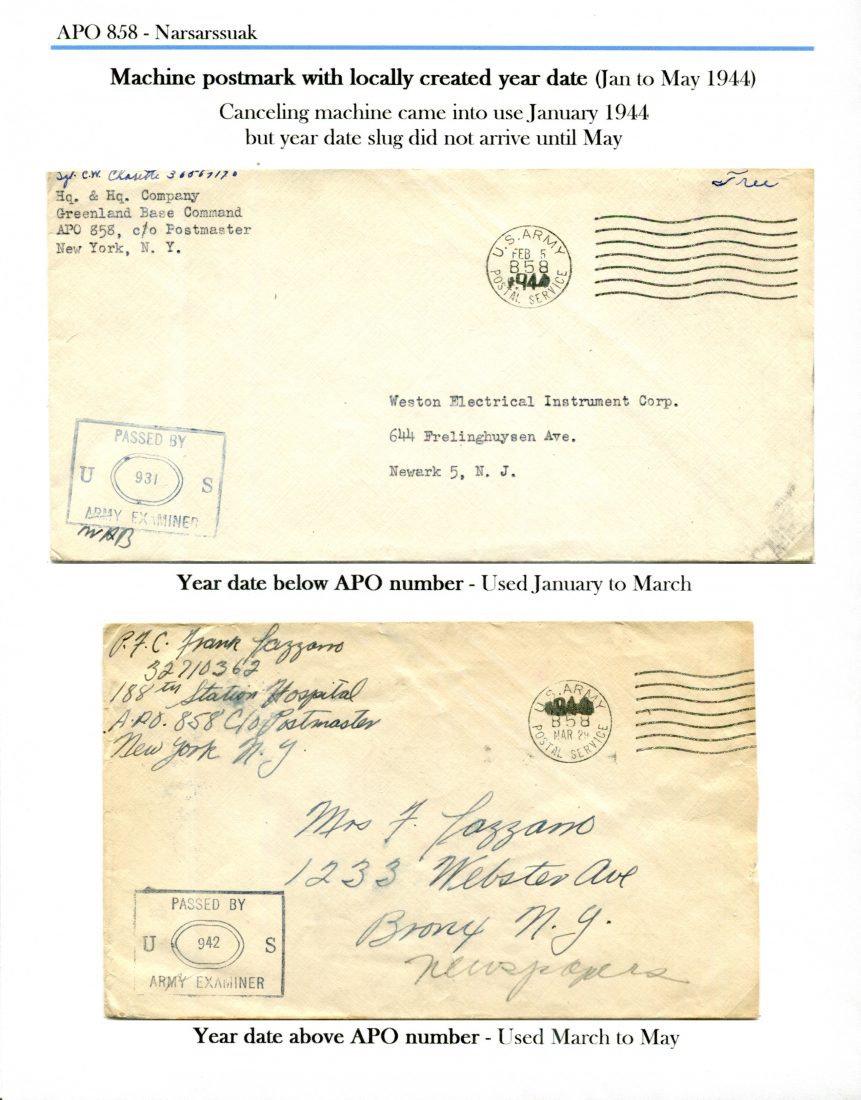 APO 858 - Narsarssuak
Machine postmark with locally created year date (Jan to May 1944)
Canceling machine came into use January 1944
but year date slug did not arrive until May
Sgt. C.W.
Free
Hq. & Hq. Company
Greenland Base Command
APO 858, c/o Postmaster
New York, N. Y.
U.S. ARMY
FEB 5
858
1944
POSTAL SERVICE
Weston Electrical Instrument Corp.
644 Frelinghuysen Ave.
Newark 5, N. J.
PASSED BY
U 931 S
ARMY EXAMINER
WAB
Year date below APO number - Used January to March
P.F.C. Frank Gazzano
32710362
188th Station Hospital
A.P.O. 858 C/o Postmaster
New York N.Y.
U.S. ARMY
1944
858
MAR 29
POSTAL SERVICE
Mrs F. Gazzano
1233 Webster Ave
Bronx N.Y.
newspapers
PASSED BY
U 942 S
ARMY EXAMINER
Year date above APO number - Used March to May